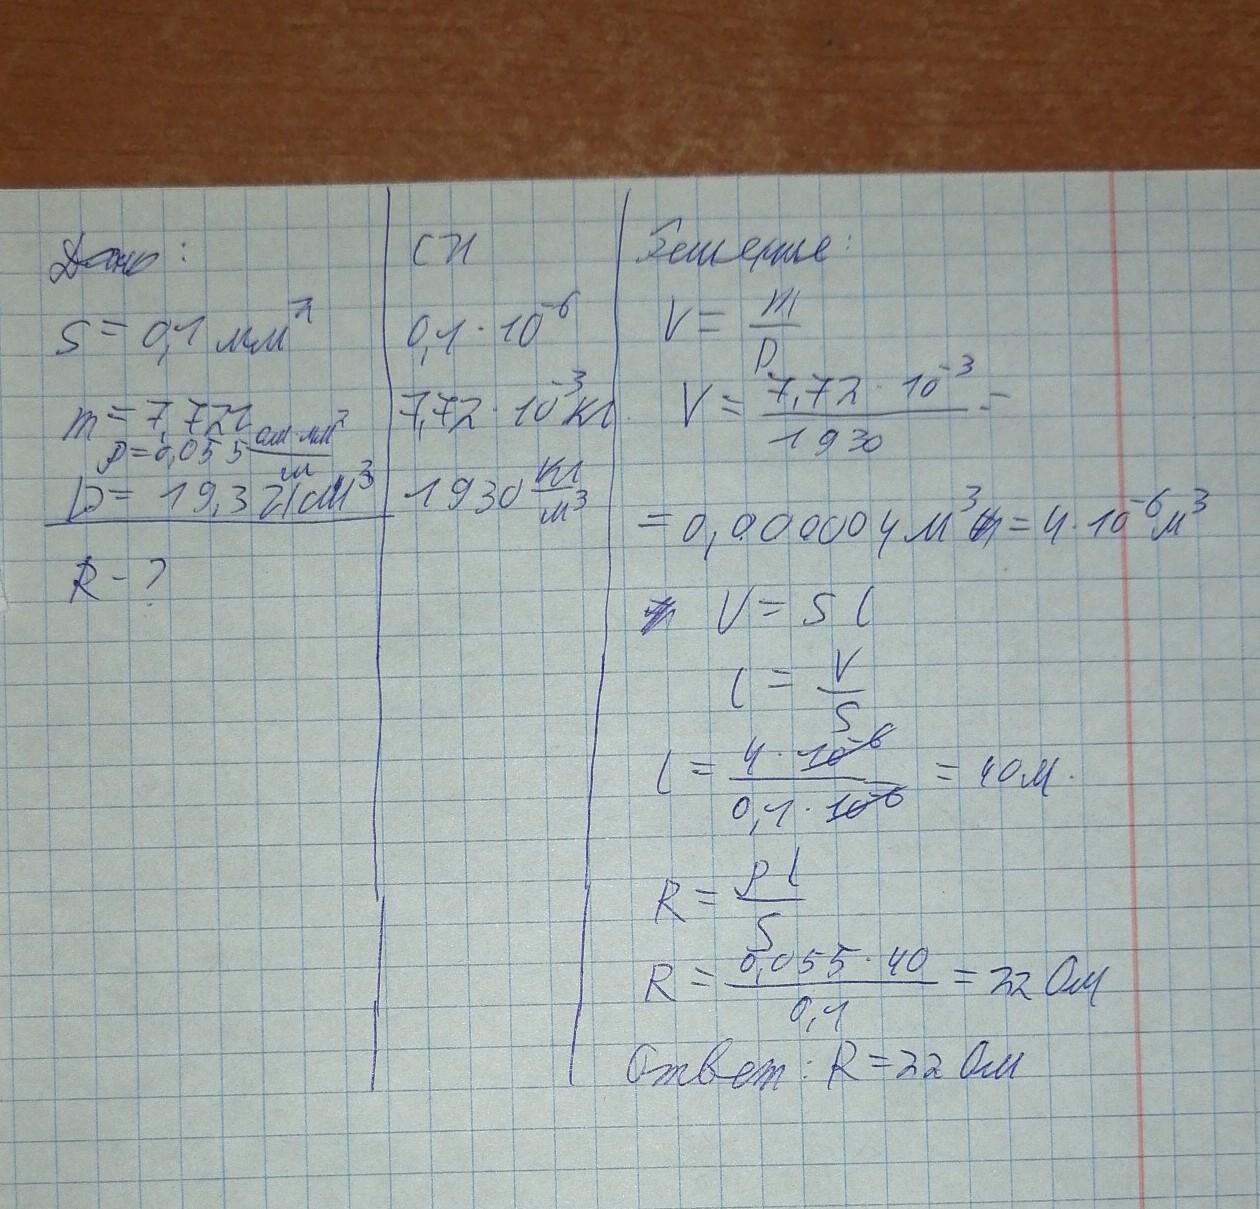 Дано:
S = 0,1 мм²
m = 7,72г
ρ = 0,055 ом·мм²/м
D = 19,3 г/см³
R - ?
СИ
0,1 · 10⁻⁶
7,72 · 10⁻³ кг
1930 кг/м³
Решение:
V = m/D
V = 7,72 · 10⁻³/1930 =
= 0,000004 м³ = 4 · 10⁻⁶ м³
V = S l
l = V/S
l = 4 · 10⁻⁶/0,1 · 10⁻⁶ = 40 м.
R = ρ l/S
R = 0,055 · 40/0,1 = 22 Ом
Ответ: R = 22 Ом